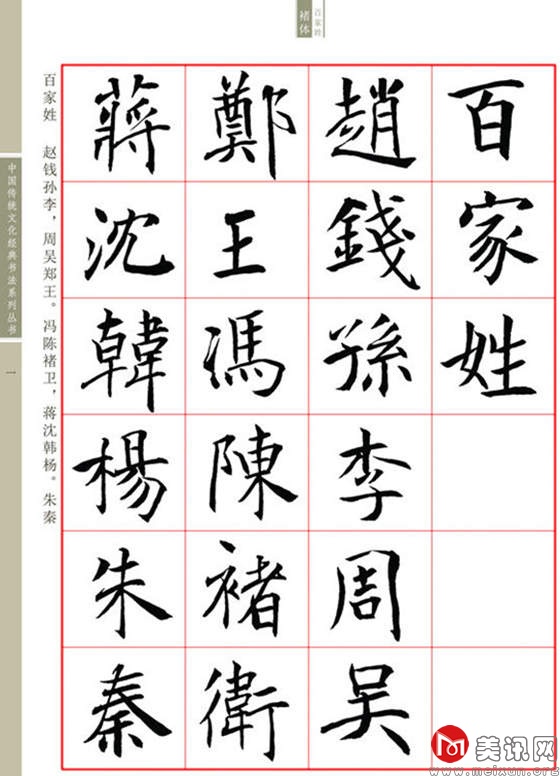 百家姓
褚体
百家姓
趙錢孫李周吳
鄭王馮陳褚衛
蔣沈韓楊朱秦
百家姓　赵钱孙李，周吴郑王。冯陈褚卫，蒋沈韩杨。朱秦
中国传统文化经典书法系列丛书
一
美讯网
www.meixun.org